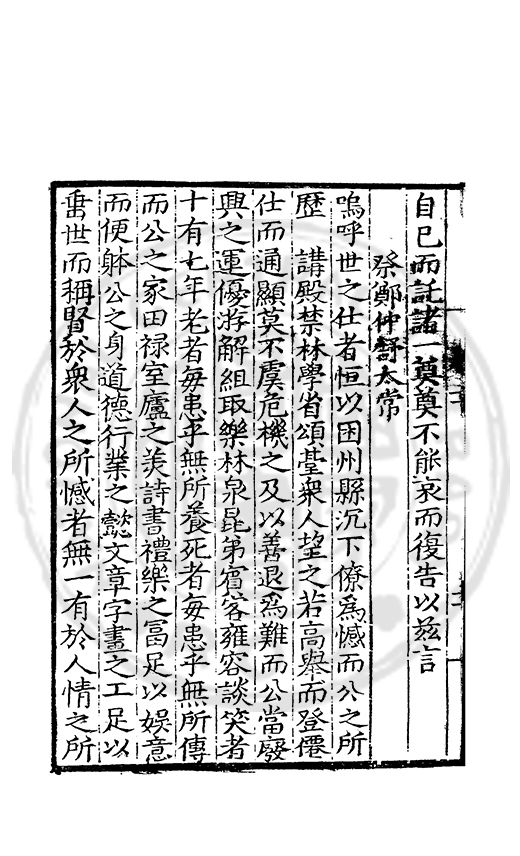 自已而託諸一奠奠不能哀而復告以茲言
祭鄭仲舒太常
嗚呼世之仕者恒以困州縣沉下僚為憾而公之所
歷　講殿禁林學省頌臺衆人望之若高舉而登僊
仕而通顯莫不虞危機之及以善退為難而公當廢
興之運優游解組取樂林泉昆弟賓客雍容談笑者
十有七年老者每患乎無所養死者每患乎無所傳
而公之家田禄室廬之羡詩書禮樂之冨足以娱意
而便躰公之身道德行業之懿文章字畫之工足以
垂世而稱賢於衆人之所憾者無一有於人情之所